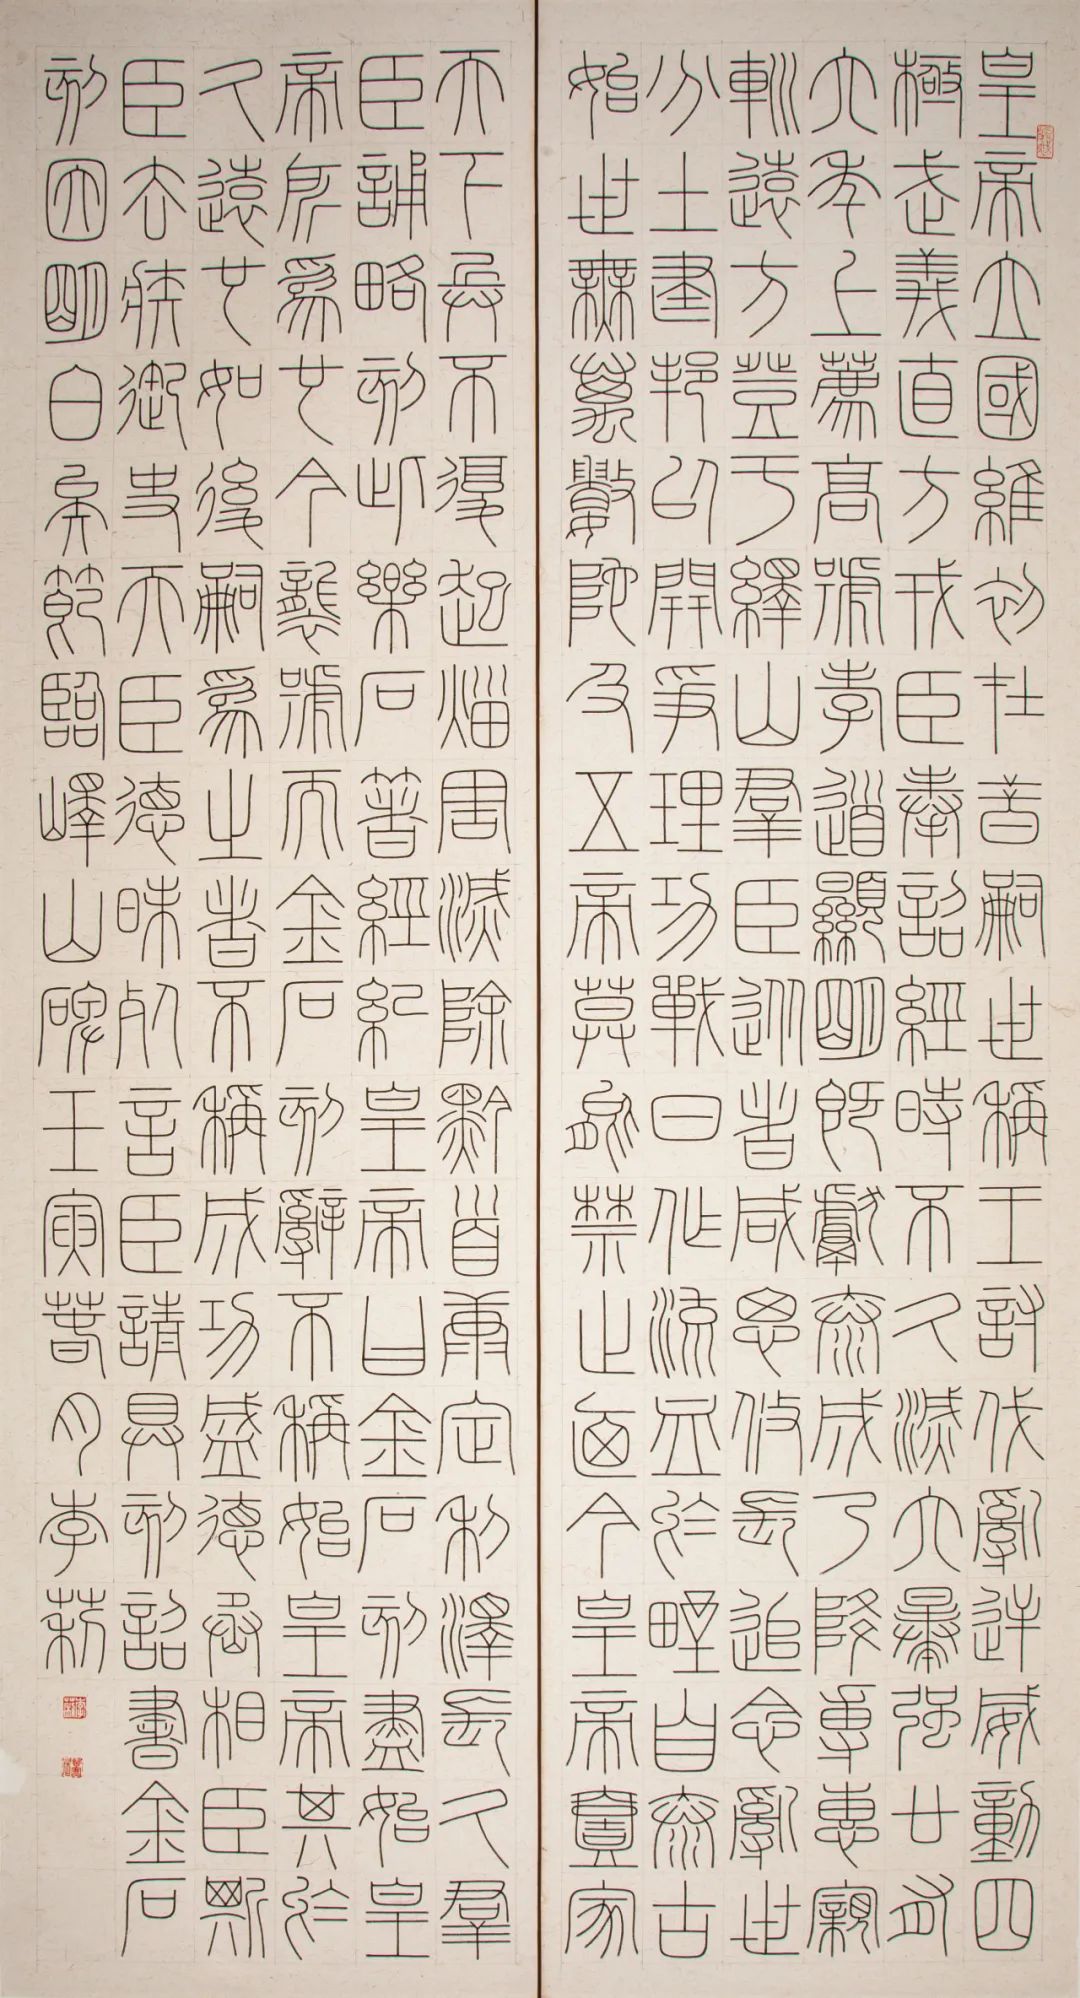 皇帝立國維初在昔嗣世稱王討伐亂逆威動四
極武義直方戎臣奉詔經時不久滅六暴強廿有
六年上薦高號孝道顯明既獻泰成乃降專惠親
䡅遠方登于繹山羣臣從者咸思攸長追念亂世
分土建邦以開爭理功戰日作流血於野自泰古
始世無萬數陀及五帝莫能禁止廼今皇帝壹家
天下兵不復起災害滅除黔首康定利澤長久羣
臣誦略刻此樂石著經紀皇帝曰金石刻盡始皇
帝所爲也今襲號而金石刻辭不稱始皇帝其於
久遠也如後嗣爲之者不稱成功盛德丞相臣斯
臣去疾御史夫臣德昧死言臣請具刻詔書金石
刻因明白矣節臨嶧山碑壬寅春月李